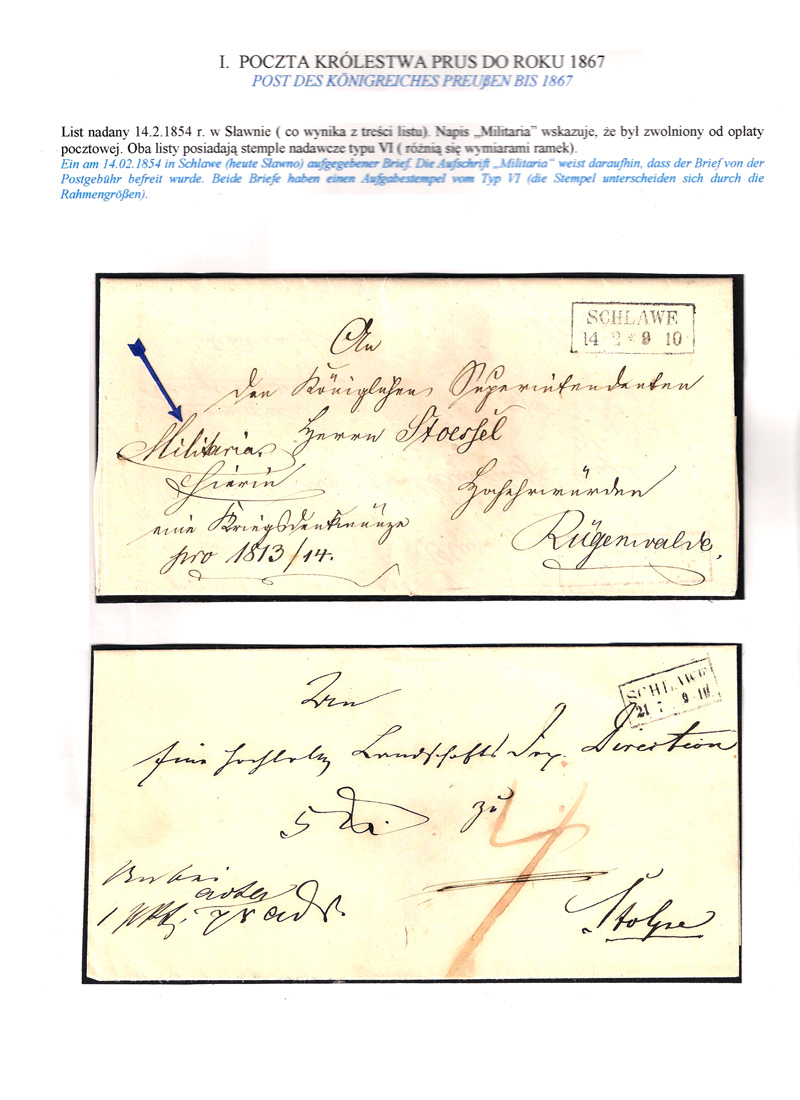 I. POCZTA KRÓLESTWA PRUS DO ROKU 1867
POST DES KÖNIGREICHES PREUßEN BIS 1867
List nadany 14.2.1854 r. w Sławnie ( co wynika z treści listu). Napis „Militaria” wskazuje, że był zwolniony od opłaty
pocztowej. Oba listy posiadają stemple nadawcze typu VI ( różnią się wymiarami ramek).
Ein am 14.02.1854 in Schlawe (heute Sławno) aufgegebener Brief. Die Aufschrift „Militaria” weist daraufhin, dass der Brief von der
Postgebühr befreit wurde. Beide Briefe haben einen Aufgabestempel vom Typ VI (die Stempel unterscheiden sich durch die
Rahmengrößen).
SCHLAWE
14 2 * 9 10
An
den Königlichen Superintendenten
Herrn Stoessel
Militaria.
Hierin
Hochehrwürden
eine Kriegsdenkmünze
pro 1813/14.
Rügenwalde.
SCHLAWE
21 7 9-10
An
Eine Landschafts Dep. Direction
zu
4
Stolpe